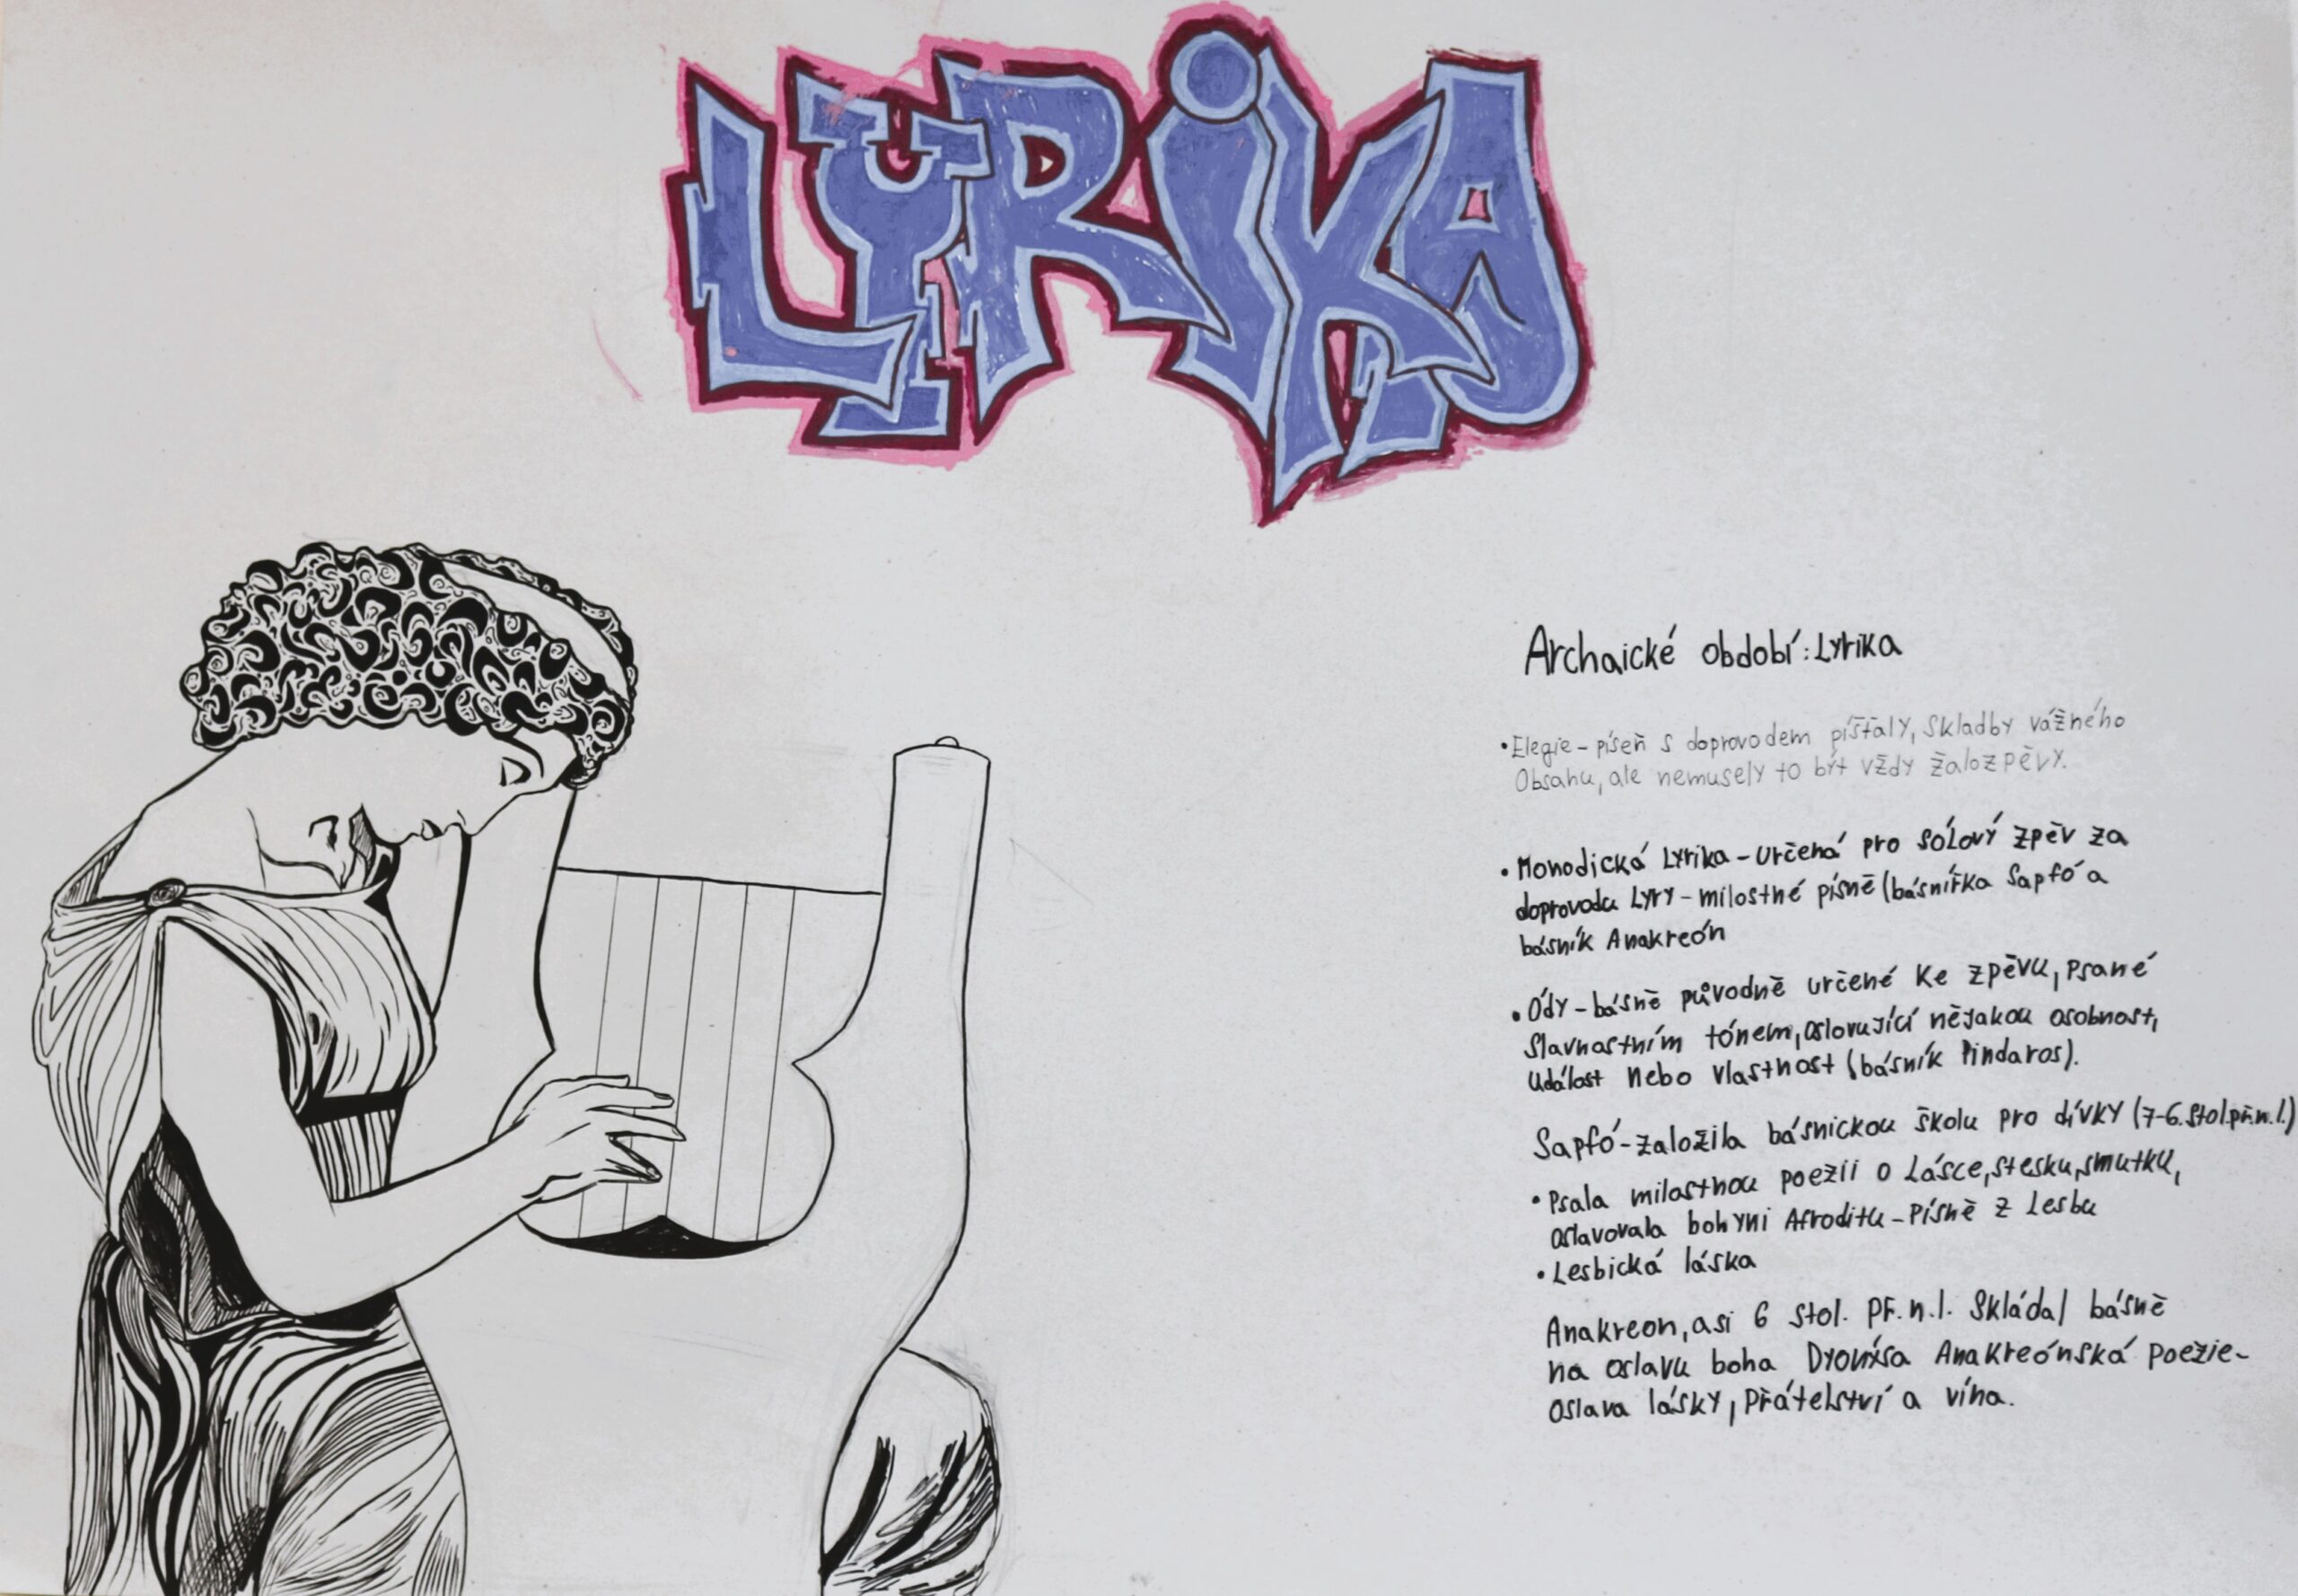 LYRiKA
Archaické období: Lyrika
• Elegie - píseň s doprovodem píšťaly, skladby vážného
Obsahu, ale nemusely to být vždy žalozpěvy.
• Monodická Lyrika - určená pro sólový zpěv za
doprovodu Lyry - milostné písně (básnířka Sapfó a
básník Anakreón
• Ódy - básně původně určené ke zpěvu, psané
slavnostním tónem, oslovující nějakou osobnost,
událost nebo vlastnost (básník Pindaros).
Sapfó - založila básnickou školu pro dívky (7-6. stol. př. n. l.)
• Psala milostnou poezii o Lásce, stesku, smutku,
oslavovala bohyni Afroditu - Písně z Lesbu
• Lesbická láska
Anakreon, asi 6 stol. př. n. l. Skládal básně
na oslavu boha Dyonýsa Anakreónská poezie -
oslava lásky, přátelství a vína.